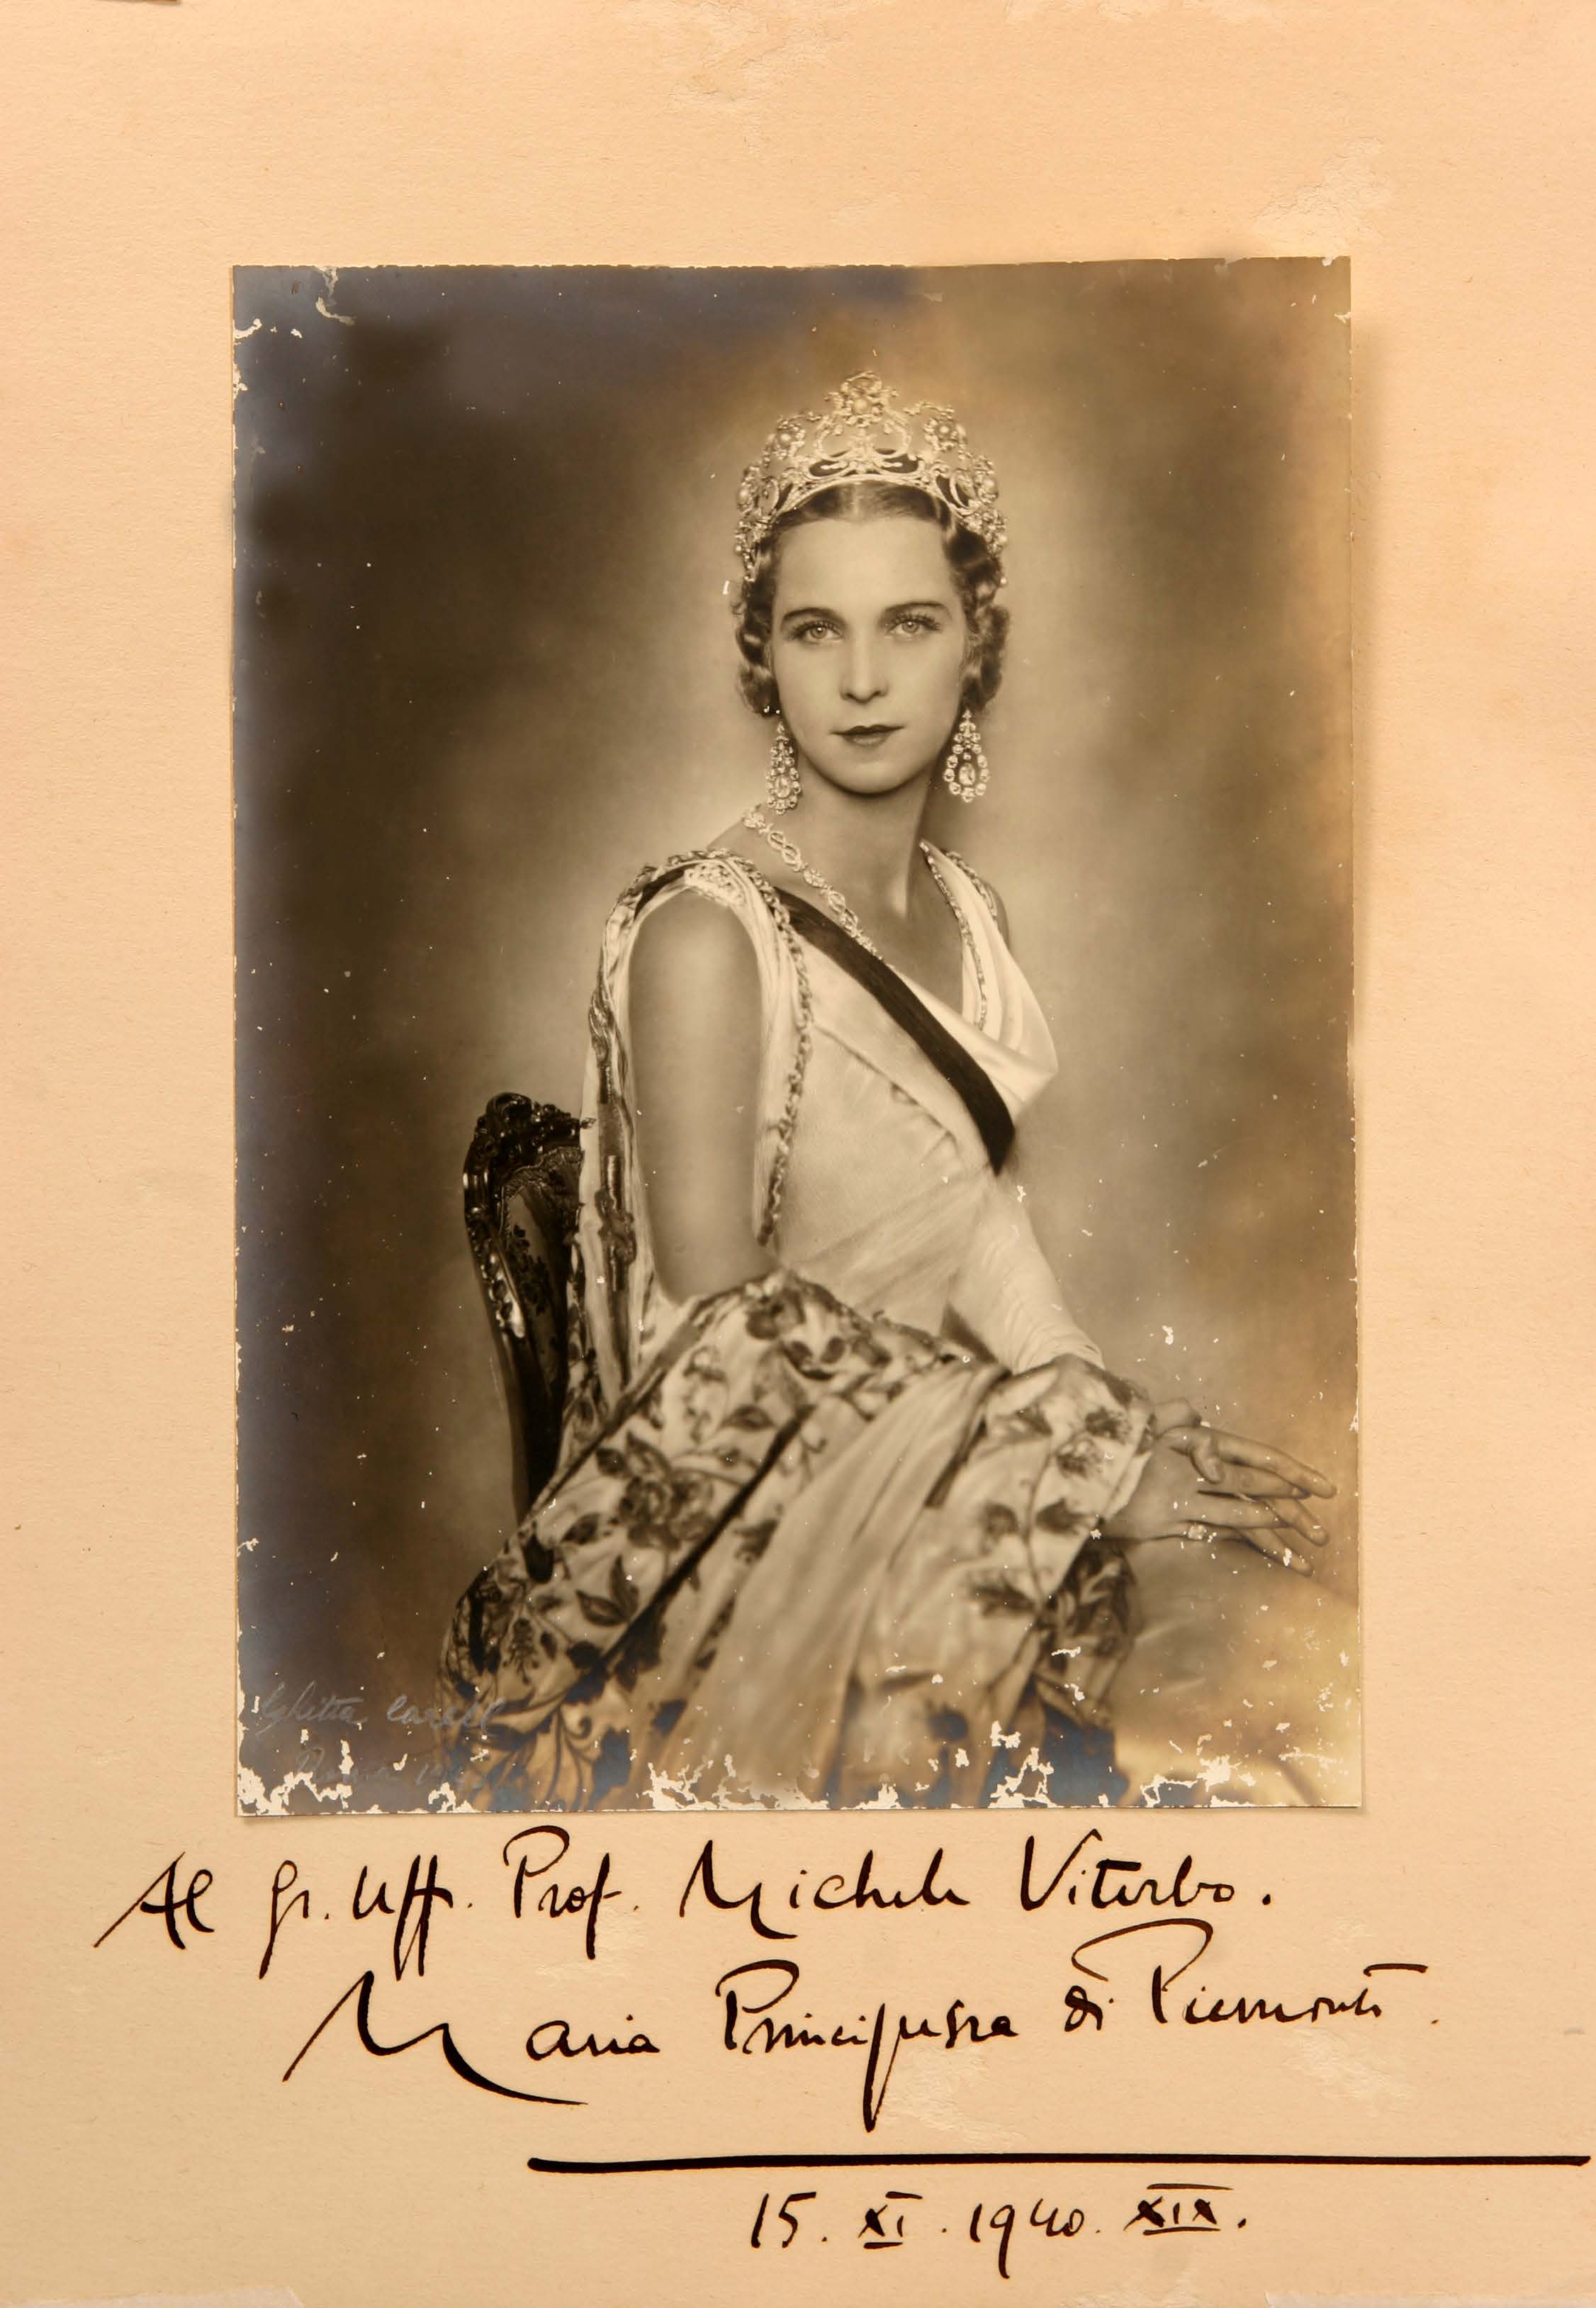 Ghitta Carell
Roma
Al Gr. Uff. Prof. Michele Viterbo.
Maria Principessa di Piemonte.
15. XI. 1940. XIX.